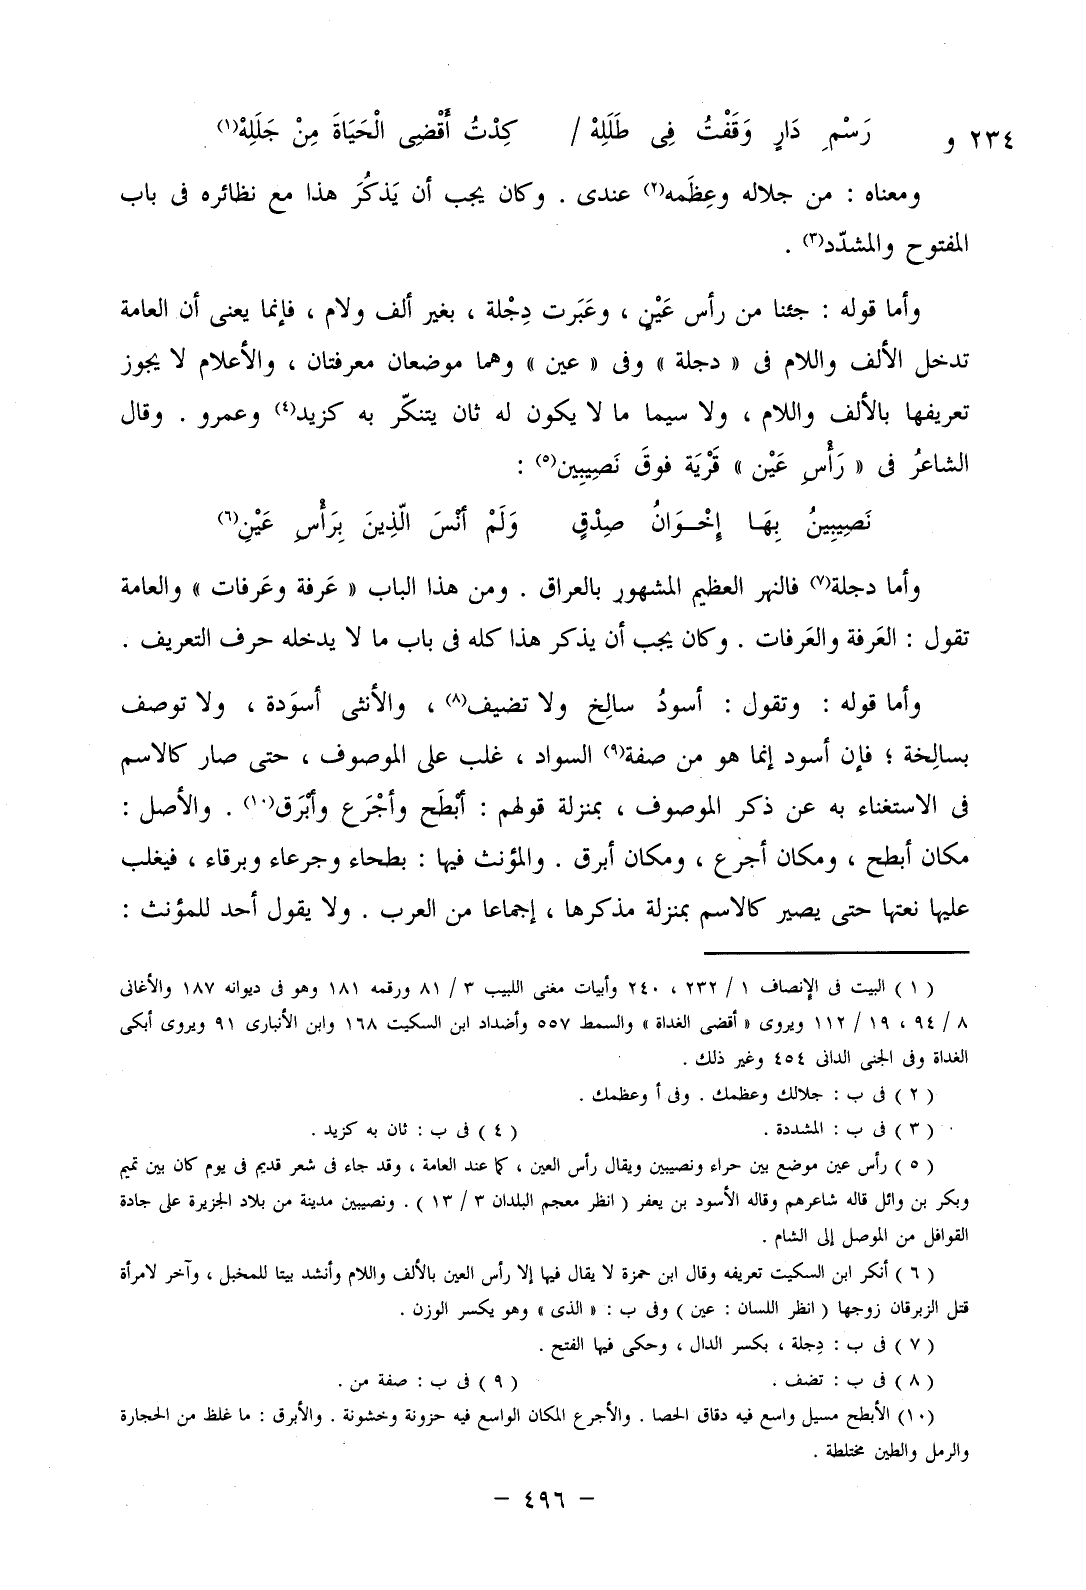 ٢٣٤ و رَسْمِ دَارٍ وَقَفْتُ فِى طَلَلِهْ / كِدْتُ أَقْضِى الْحَيَاةَ مِنْ جَلَلِهْ(١)
ومعناه : من جلاله وعِظَمه(٢) عندى . وكان يجب أن يَذكُرَ هذا مع نظائره فى باب
المفتوح والمشدّد(٣) .
وأما قوله : جئنا من رأس عَيْنٍ ، وعَبَرت دِجْلة ، بغير ألف ولام ، فإنما يعنى أن العامة
تدخل الألف واللام فى « دجلة » وفى « عين » وهما موضعان معرفتان ، والأعلام لا يجوز
تعريفها بالألف واللام ، ولا سيما ما لا يكون له ثان يتنكّر به كزيد(٤) وعمرو . وقال
الشاعرُ فى « رَأْسِ عَيْن » قَرْيَة فوقَ نَصِيبِين(٥) :
نَصِيبِينُ بِهَا إِخْوَانُ صِدْقٍ وَلَمْ أَنْسَ الَّذِينَ بِرَأْسِ عَيْنِ(٦)
وأما دجلة(٧) فالنهر العظيم المشهور بالعراق . ومن هذا الباب « عَرفة وعَرفات » والعامة
تقول : العَرفة والعَرفات . وكان يجب أن يذكر هذا كله فى باب ما لا يدخله حرف التعريف .
وأما قوله : وتقول : أسودُ سالِخ ولا تضيف(٨) ، والأنثى أسوَدة ، ولا توصف
بسالِخة ؛ فإن أسود إنما هو من صفة(٩) السواد ، غلب على الموصوف ، حتى صار كالاسم
فى الاستغناء به عن ذكر الموصوف ، بمنزلة قولهم : أبْطَح وأجْرَع وأبْرَق(١٠) . والأصل :
مكان أبطح ، ومكان أجرع ، ومكان أبرق . والمؤنث فيها : بطحاء وجرعاء وبرقاء ، فيغلب
عليها نعتها حتى يصير كالاسم بمنزلة مذكرها ، إجماعا من العرب . ولا يقول أحد للمؤنث :
( ١ ) البيت فى الإنصاف ١ / ٢٣٢ ، ٢٤٠ وأبيات مغنى اللبيب ٣ / ٨١ ورقمه ١٨١ وهو فى ديوانه ١٨٧ والأغانى
٨ / ٩٤ ، ١٩ / ١١٢ ويروى « أقضى الغداة » والسمط ٥٥٧ وأضداد ابن السكيت ١٦٨ وابن الأنبارى ٩١ ويروى أبكى
الغداة وفى الجنى الدانى ٤٥٤ وغير ذلك .
( ٢ ) فى ب : جلالك وعظمك . وفى أ وعظمك .
( ٣ ) فى ب : المشددة . ( ٤ ) فى ب : ثان به كزيد .
( ٥ ) رأس عين موضع بين حراء ونصيبين ويقال رأس العين ، كما عند العامة ، وقد جاء فى شعر قديم فى يوم كان بين تميم
وبكر بن وائل قاله شاعرهم وقاله الأسود بن يعفر ( انظر معجم البلدان ٣ / ١٣ ) . ونصيبين مدينة من بلاد الجزيرة على جادة
القوافل من الموصل إلى الشام .
( ٦ ) أنكر ابن السكيت تعريفه وقال ابن حمزة لا يقال فيها إلا رأس العين بالألف واللام وأنشد بيتا للمخبل ، وآخر لامرأة
قتل الزبرقان زوجها ( انظر اللسان : عين ) وفى ب : « الذى » وهو يكسر الوزن .
( ٧ ) فى ب : دِجلة ، بكسر الدال ، وحكى فيها الفتح .
( ٨ ) فى ب : تضف . ( ٩ ) فى ب : صفة من .
(١٠) الأبطح مسيل واسع فيه دقاق الحصا . والأجرع المكان الواسع فيه حزونة وخشونة . والأبرق : ما غلظ من الحجارة
والرمل والطين مختلطة .
– ٤٩٦ –